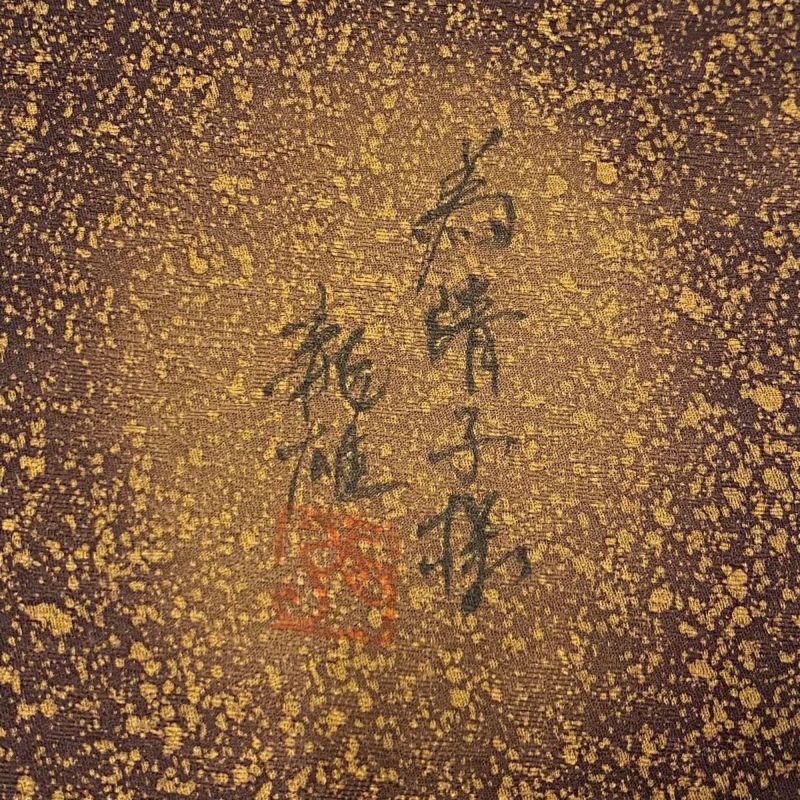 為晴子様
龍雄